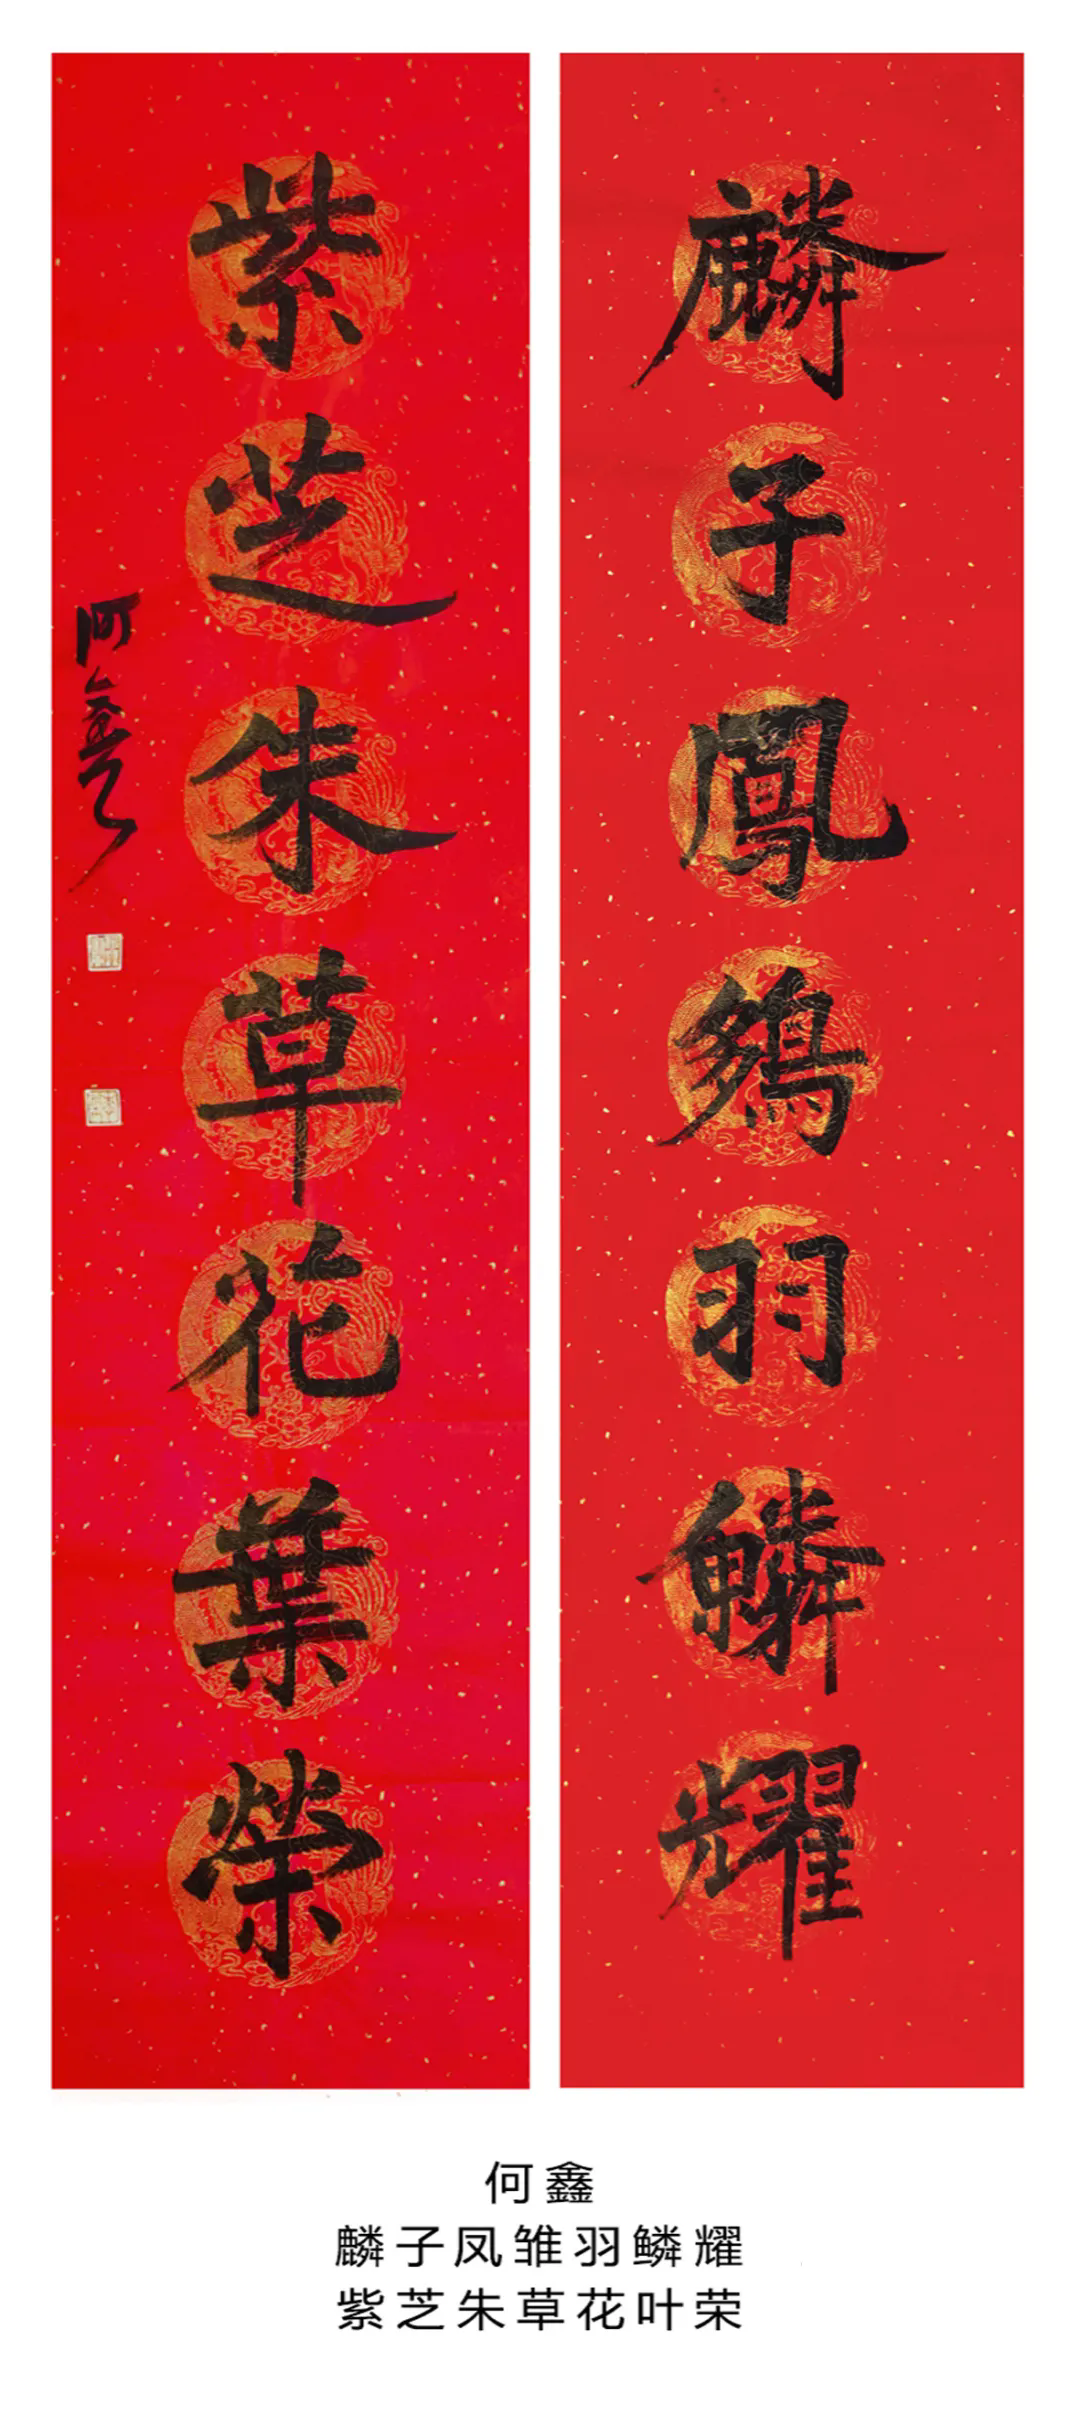 麟子鳳鶵羽鱗耀
紫芝朱草花葉榮
何鑫
何鑫
麟子凤雏羽鳞耀
紫芝朱草花叶荣